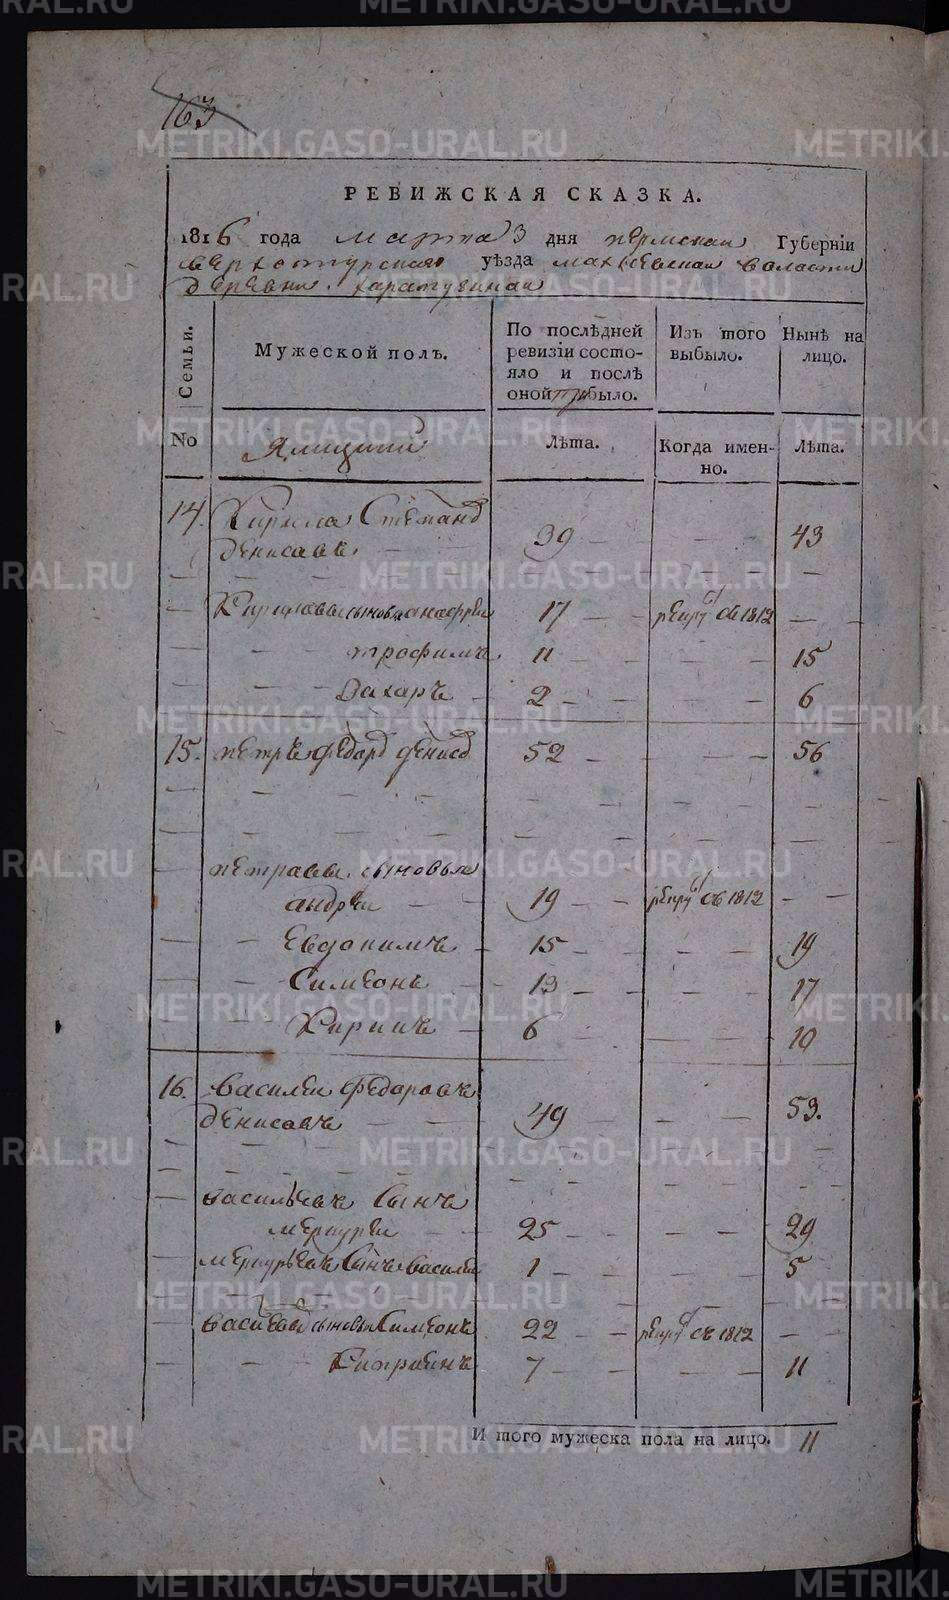 163
РЕВИЖСКАЯ СКАЗКА.
1816 года марта 3 дня пермскаи Губерніи
верхотурскаго уѣзда махневскаи валасти
деревни
Семьи.
Мужеской полъ.
По послѣдней ревизіи состояло и послѣ оной прибыло.
Изъ того выбыло.
Нынѣ на лицо.
No
Ямщики
Лѣта.
Когда именно.
Лѣта.
14. Кирила Степанд
денисавъ 39 43
Кирилавы сыновья 17 рекру съ 1812
трофимъ 11 15
Захаръ 2 6
15. петръ федард денисд 52 56
петравы сыновья
андреи 19 рекру съ 1812
Евдокимъ 15 19
Симеонъ 13 17
Кирикъ 6 10
16. Василеи Федаравъ
денисавъ 49 53.
васильевъ Сынъ
меркуреи 25 29
меркурьевъ Сынъ василеи 1 5
сыновья Симеонъ 22 рекру съ 1812
Киприенъ 7 11
И того мужеска пола на лицо. 11
METRIKI.GASO-URAL.RU